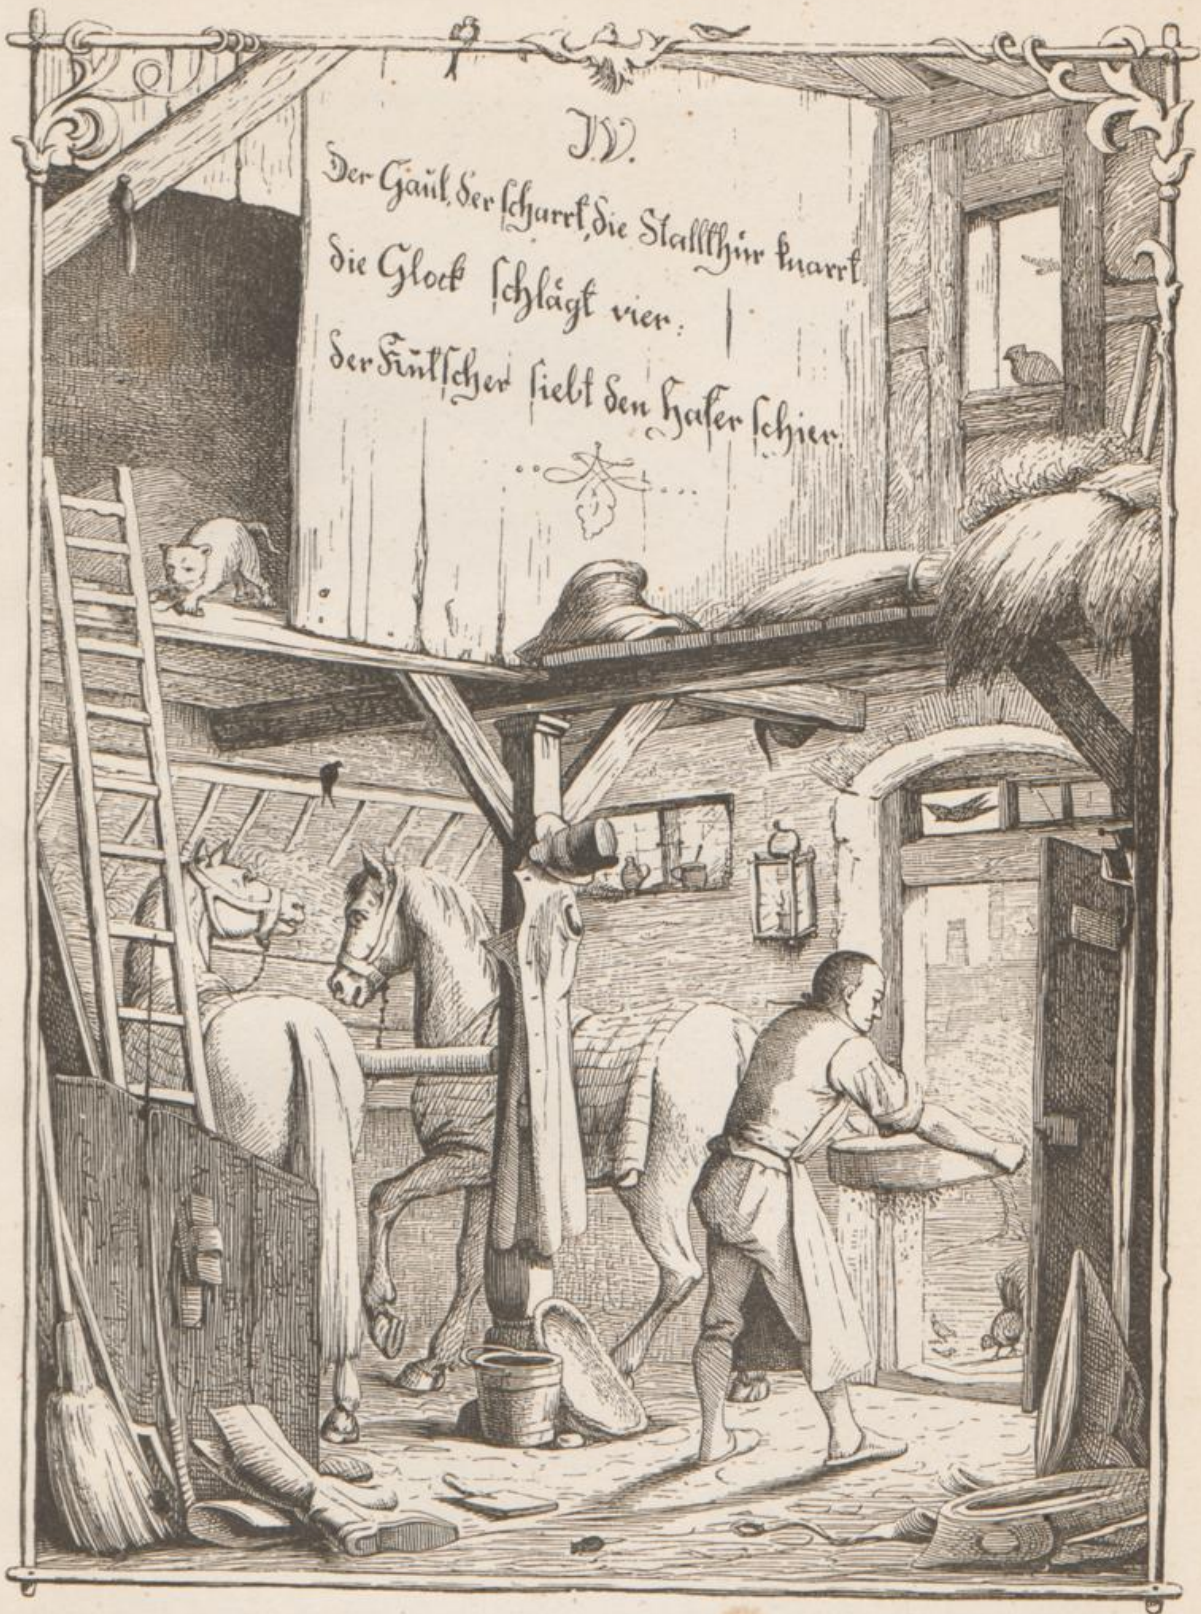 IV.
Der Gaul, der scharrt, die Stallthür knarrt,
die Glock schlägt vier:
der Kutscher siebt den Hafer schier.